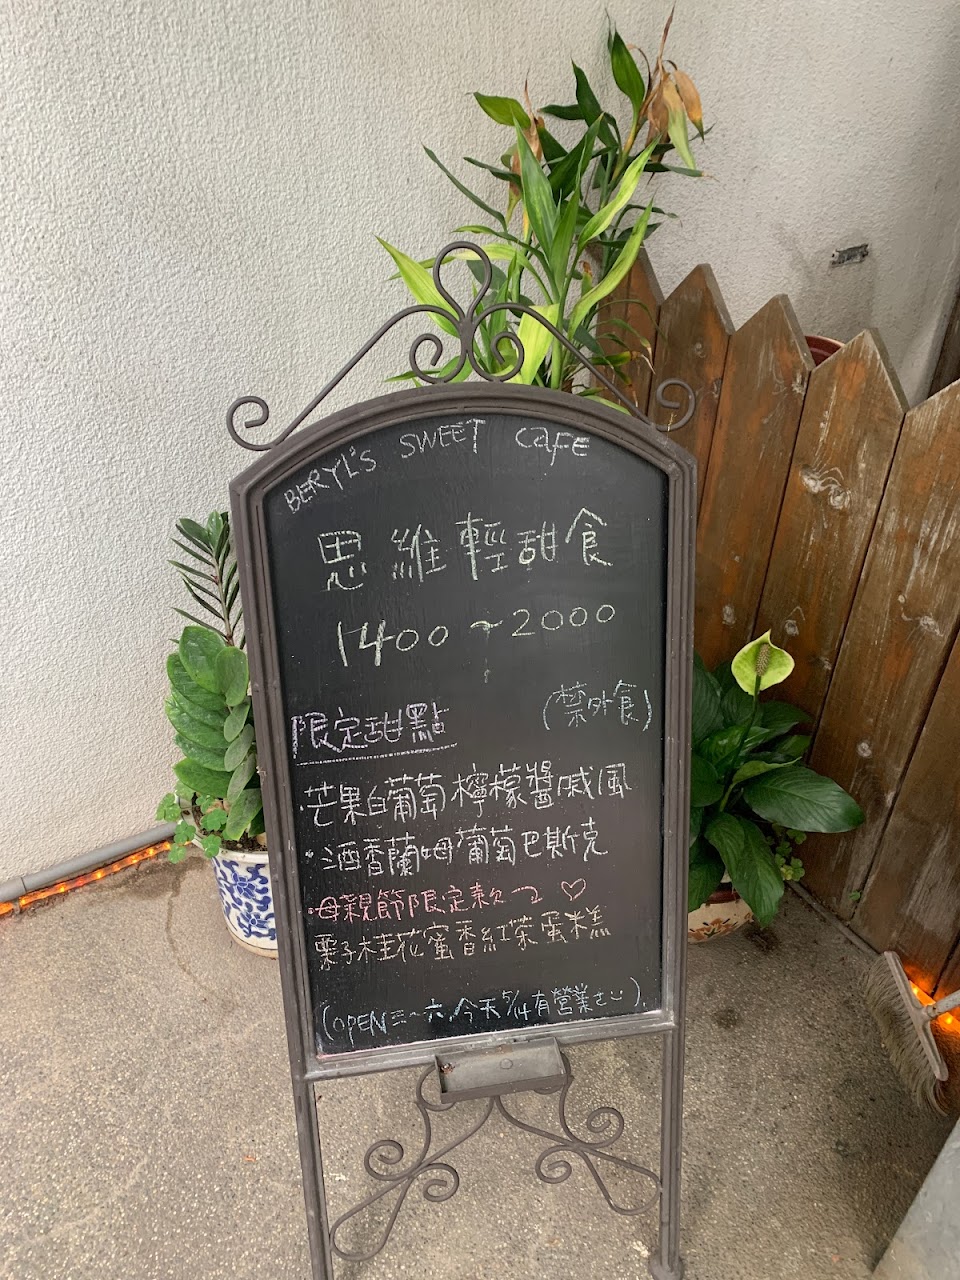 BERYL'S SWEET CAFE
思維輕甜食
1400~2000
(禁外食)
限定甜點
·芒果白葡萄檸檬醬戚風
·酒香蘭姆葡萄巴斯克
·母親節限定款~♡
栗子桂花蜜香紅茶蛋糕
(OPEN 三~六,今天5/14有營業